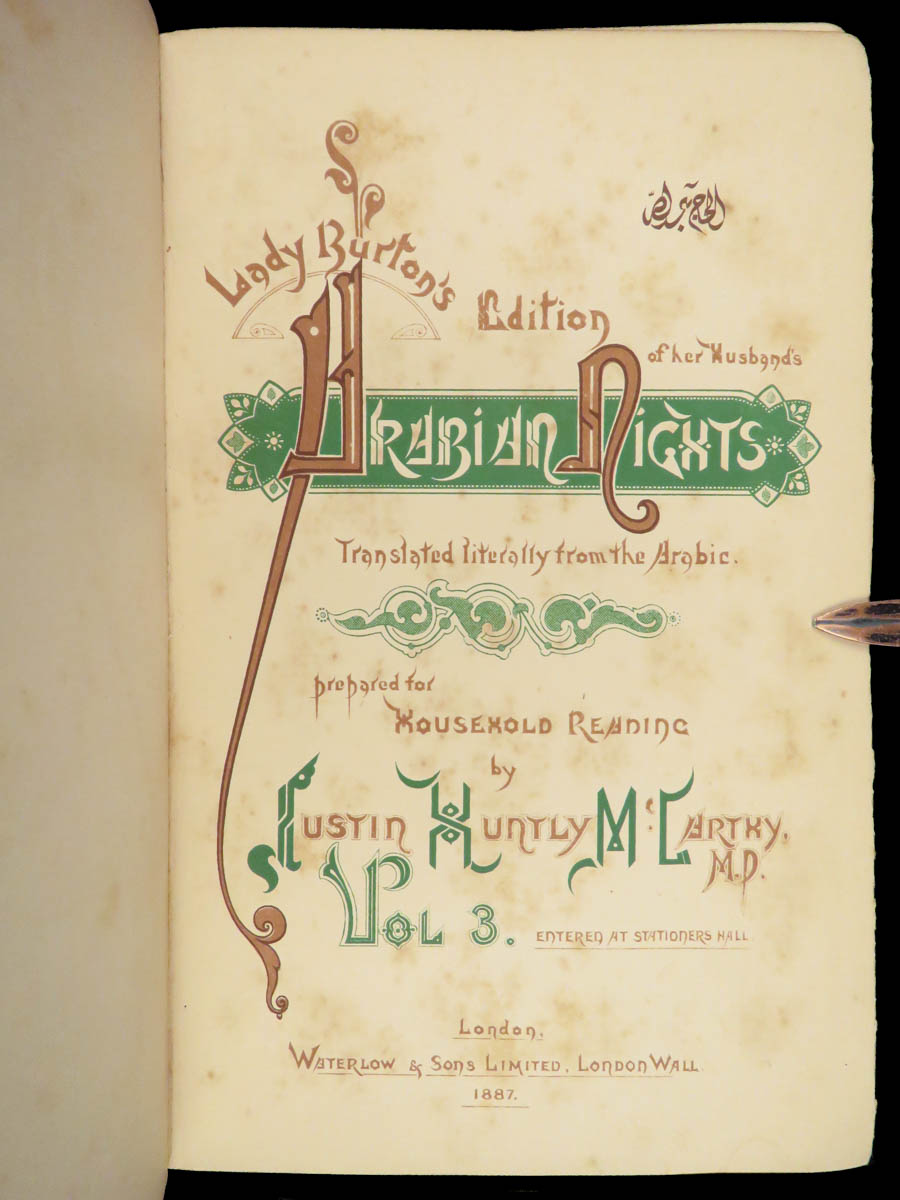 الحاج عبدالله
Lady Burton's
Edition
of her Husband's
ARABIAN NIGHTS
Translated literally from the Arabic.
prepared for
HOUSEHOLD READING
by
JUSTIN HUNTLY McCARTHY,
M.P.
VOL 3.
ENTERED AT STATIONERS HALL
London,
WATERLOW & SONS LIMITED, LONDON WALL
1887.